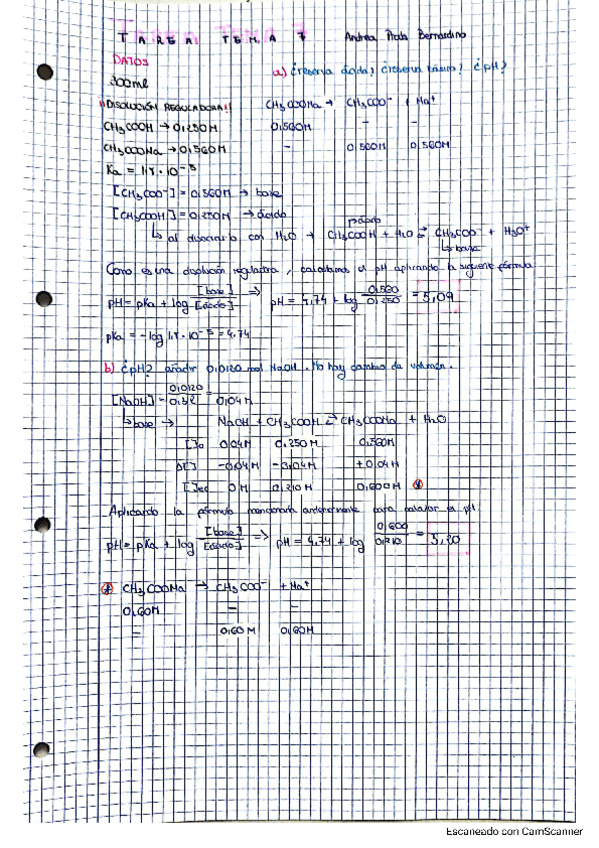 TAREA TEMA 7 Andrea Bernardino
DATOS
a) ¿reserva ácida? ¿reserva básica? ¿pH?
300ml
¡¡DISOLUCIÓN REGULADORA!! CH3COONa → CH3COO⁻ + Na⁺
CH3COOH → 0,250M 0,560M - -
CH3COONa → 0,560M - 0,560M 0,560M
Ka = 1,8·10⁻⁵
[CH3COO⁻] = 0,560M → base
[CH3COOH] = 0,250M → ácido
↳ al disociarlo con H2O → CH3COOH + H2O ⇌ CH3COO⁻ + H3O⁺
ácido
↳ base
Como es una disolución reguladora, calculamos el pH aplicando la siguiente fórmula
pH = pKa + log [base]/[ácido] => pH = 4,74 + log 0,560/0,250 = 5,09
pKa = -log 1,8·10⁻⁵ = 4,74
b) ¿pH? añadir 0,0120 mol NaOH. No hay cambio de volumen.
[NaOH] = 0,0120/ = 0,04M
↳ base → NaOH + CH3COOH ⇌ CH3COONa + H2O
[]o 0,04M 0,250M 0,560M
Δ[] -0,04M -0,04M +0,04M
[]eq 0M 0,210M 0,600M *
Aplicando la fórmula mencionada anteriormente para calcular el pH
pH = pKa + log [base]/[ácido] => pH = 4,74 + log 0,600/0,210 = 5,20
* CH3COONa → CH3COO⁻ + Na⁺
0,60M - -
- 0,60M 0,60M
Escaneado con CamScanner